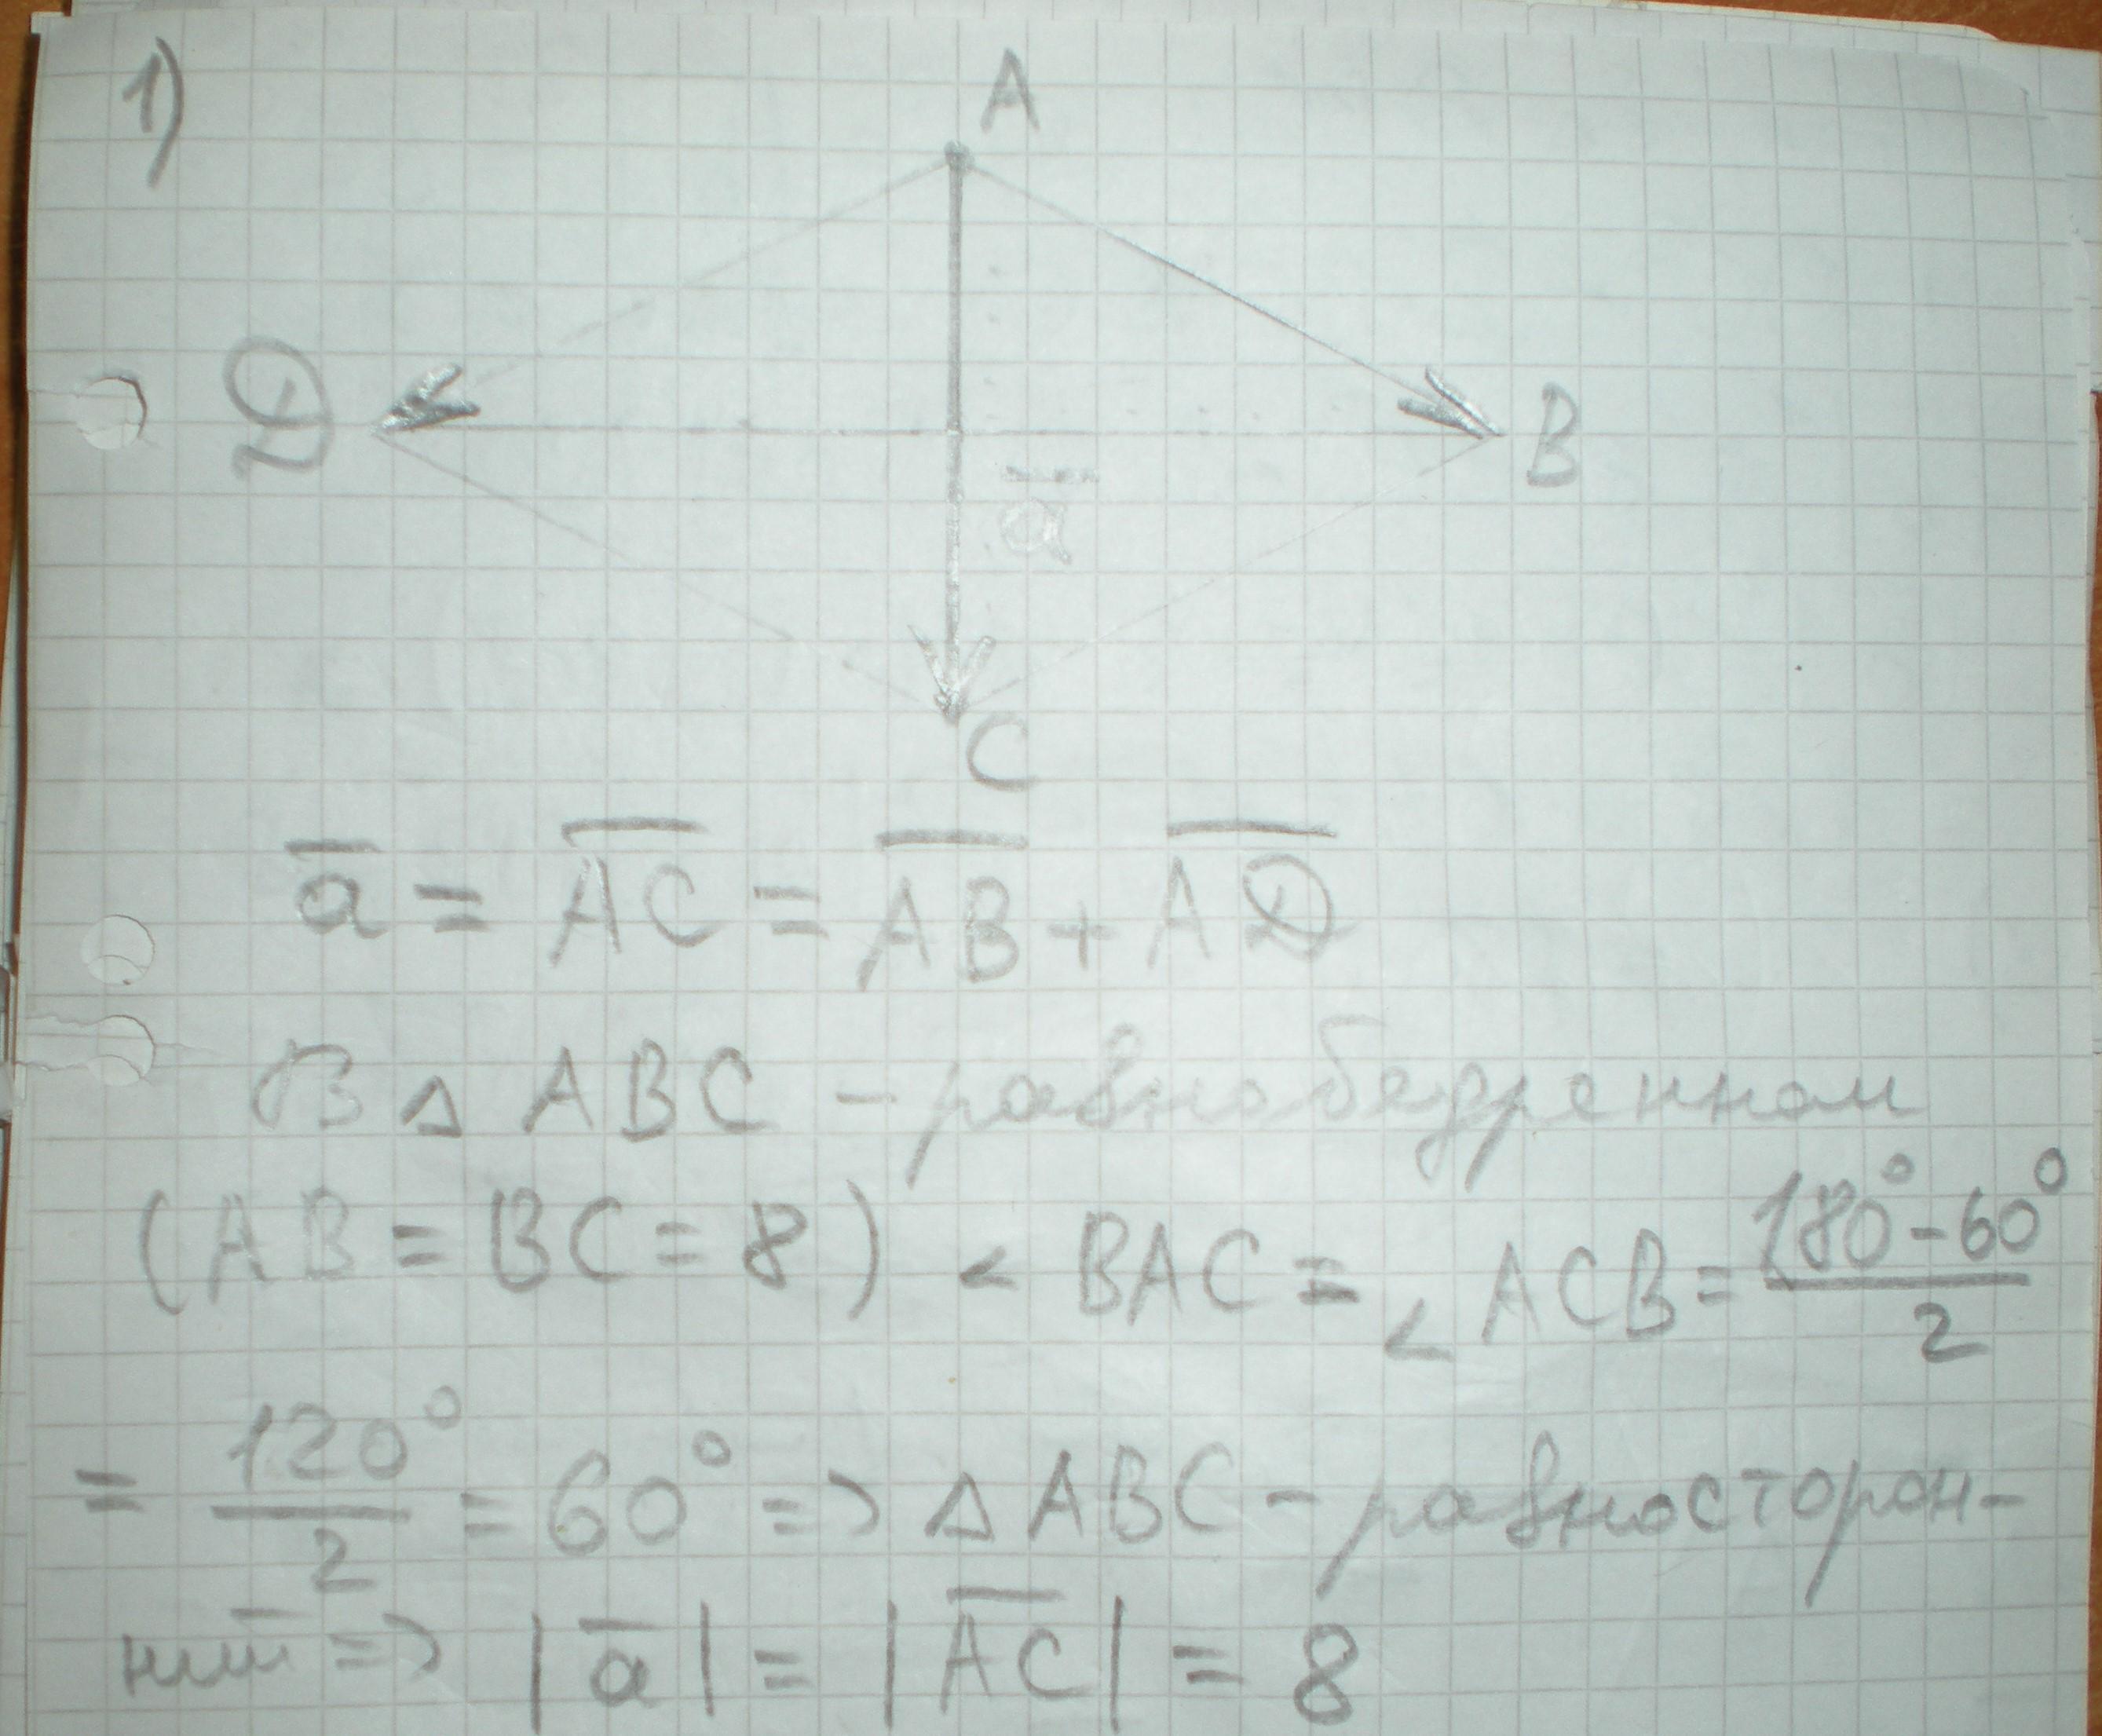 1)
A
D
B
a̅
C
a̅ = A̅C̅ = A̅B̅ + A̅D̅
В △ ABC - равнобедренном
(AB = BC = 8) ∠ BAC = ∠ ACB = (180° - 60°)/2
= 120°/2 = 60° => △ ABC - равносторон-
ний => |a̅| = |A̅C̅| = 8